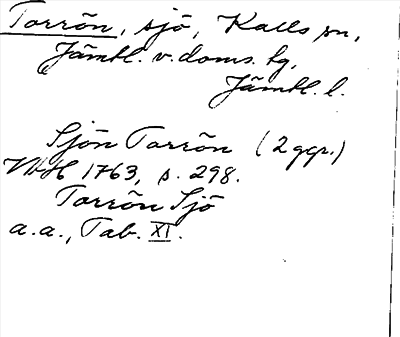 Torrön, sjö, Kalls sn,
Jämtl. v. doms. tg,
Jämtl. l.
Sjön Torrön (2 ggr.)
1763, s. 298.
Torrön Sjö
a.a., Tab. XI.